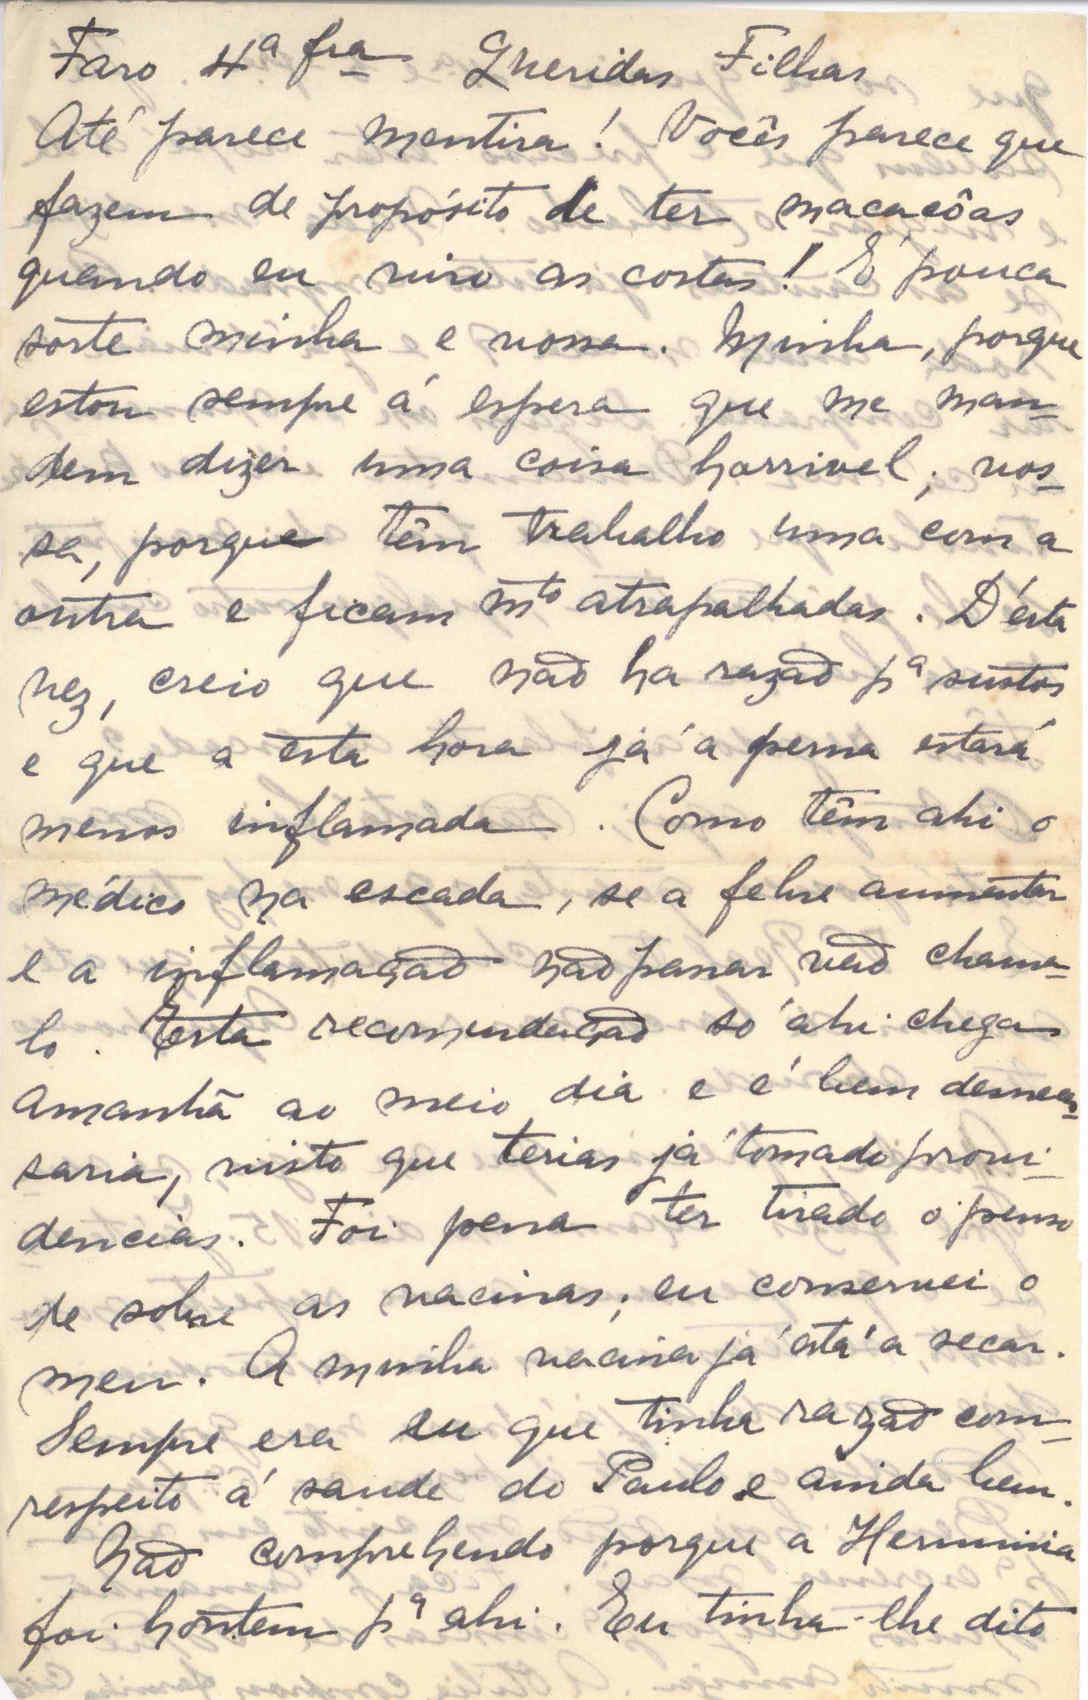 Faro 4ª fra Queridas Filhas
Até parece mentira! Vocês parece que
fazem de propósito de ter macacôas
quando eu viro as costas! É pouca
sorte minha e vossa. Minha, porque
estou sempre á espera que me man-
dem dizer uma coisa horrivel; vos-
sa, porque têm trabalho uma com a
outra e ficam mto atrapalhadas. D'ésta
vez, creio que não ha razão pª sustos
e que a esta hora já a perna estará
menos inflamada. Como têm ahi o
médico na escada, se a febre aumentar
e a inflamação não passar vão chama-
lo. Esta recomendação só ahi chega
amanhã ao meio dia e é bem desneces-
saria, visto que terias já tomado provi-
dencias. Foi pena ter tirado o penso
de sobre as vacinas; eu conservei o
meu. A minha vacina já está a secar.
Sempre era eu que tinha razão com
respeito á saude do Paulo e ainda bem.
Não comprehendo porque a Herminia
foi hontem pª ahi. Eu tinha-lhe dito